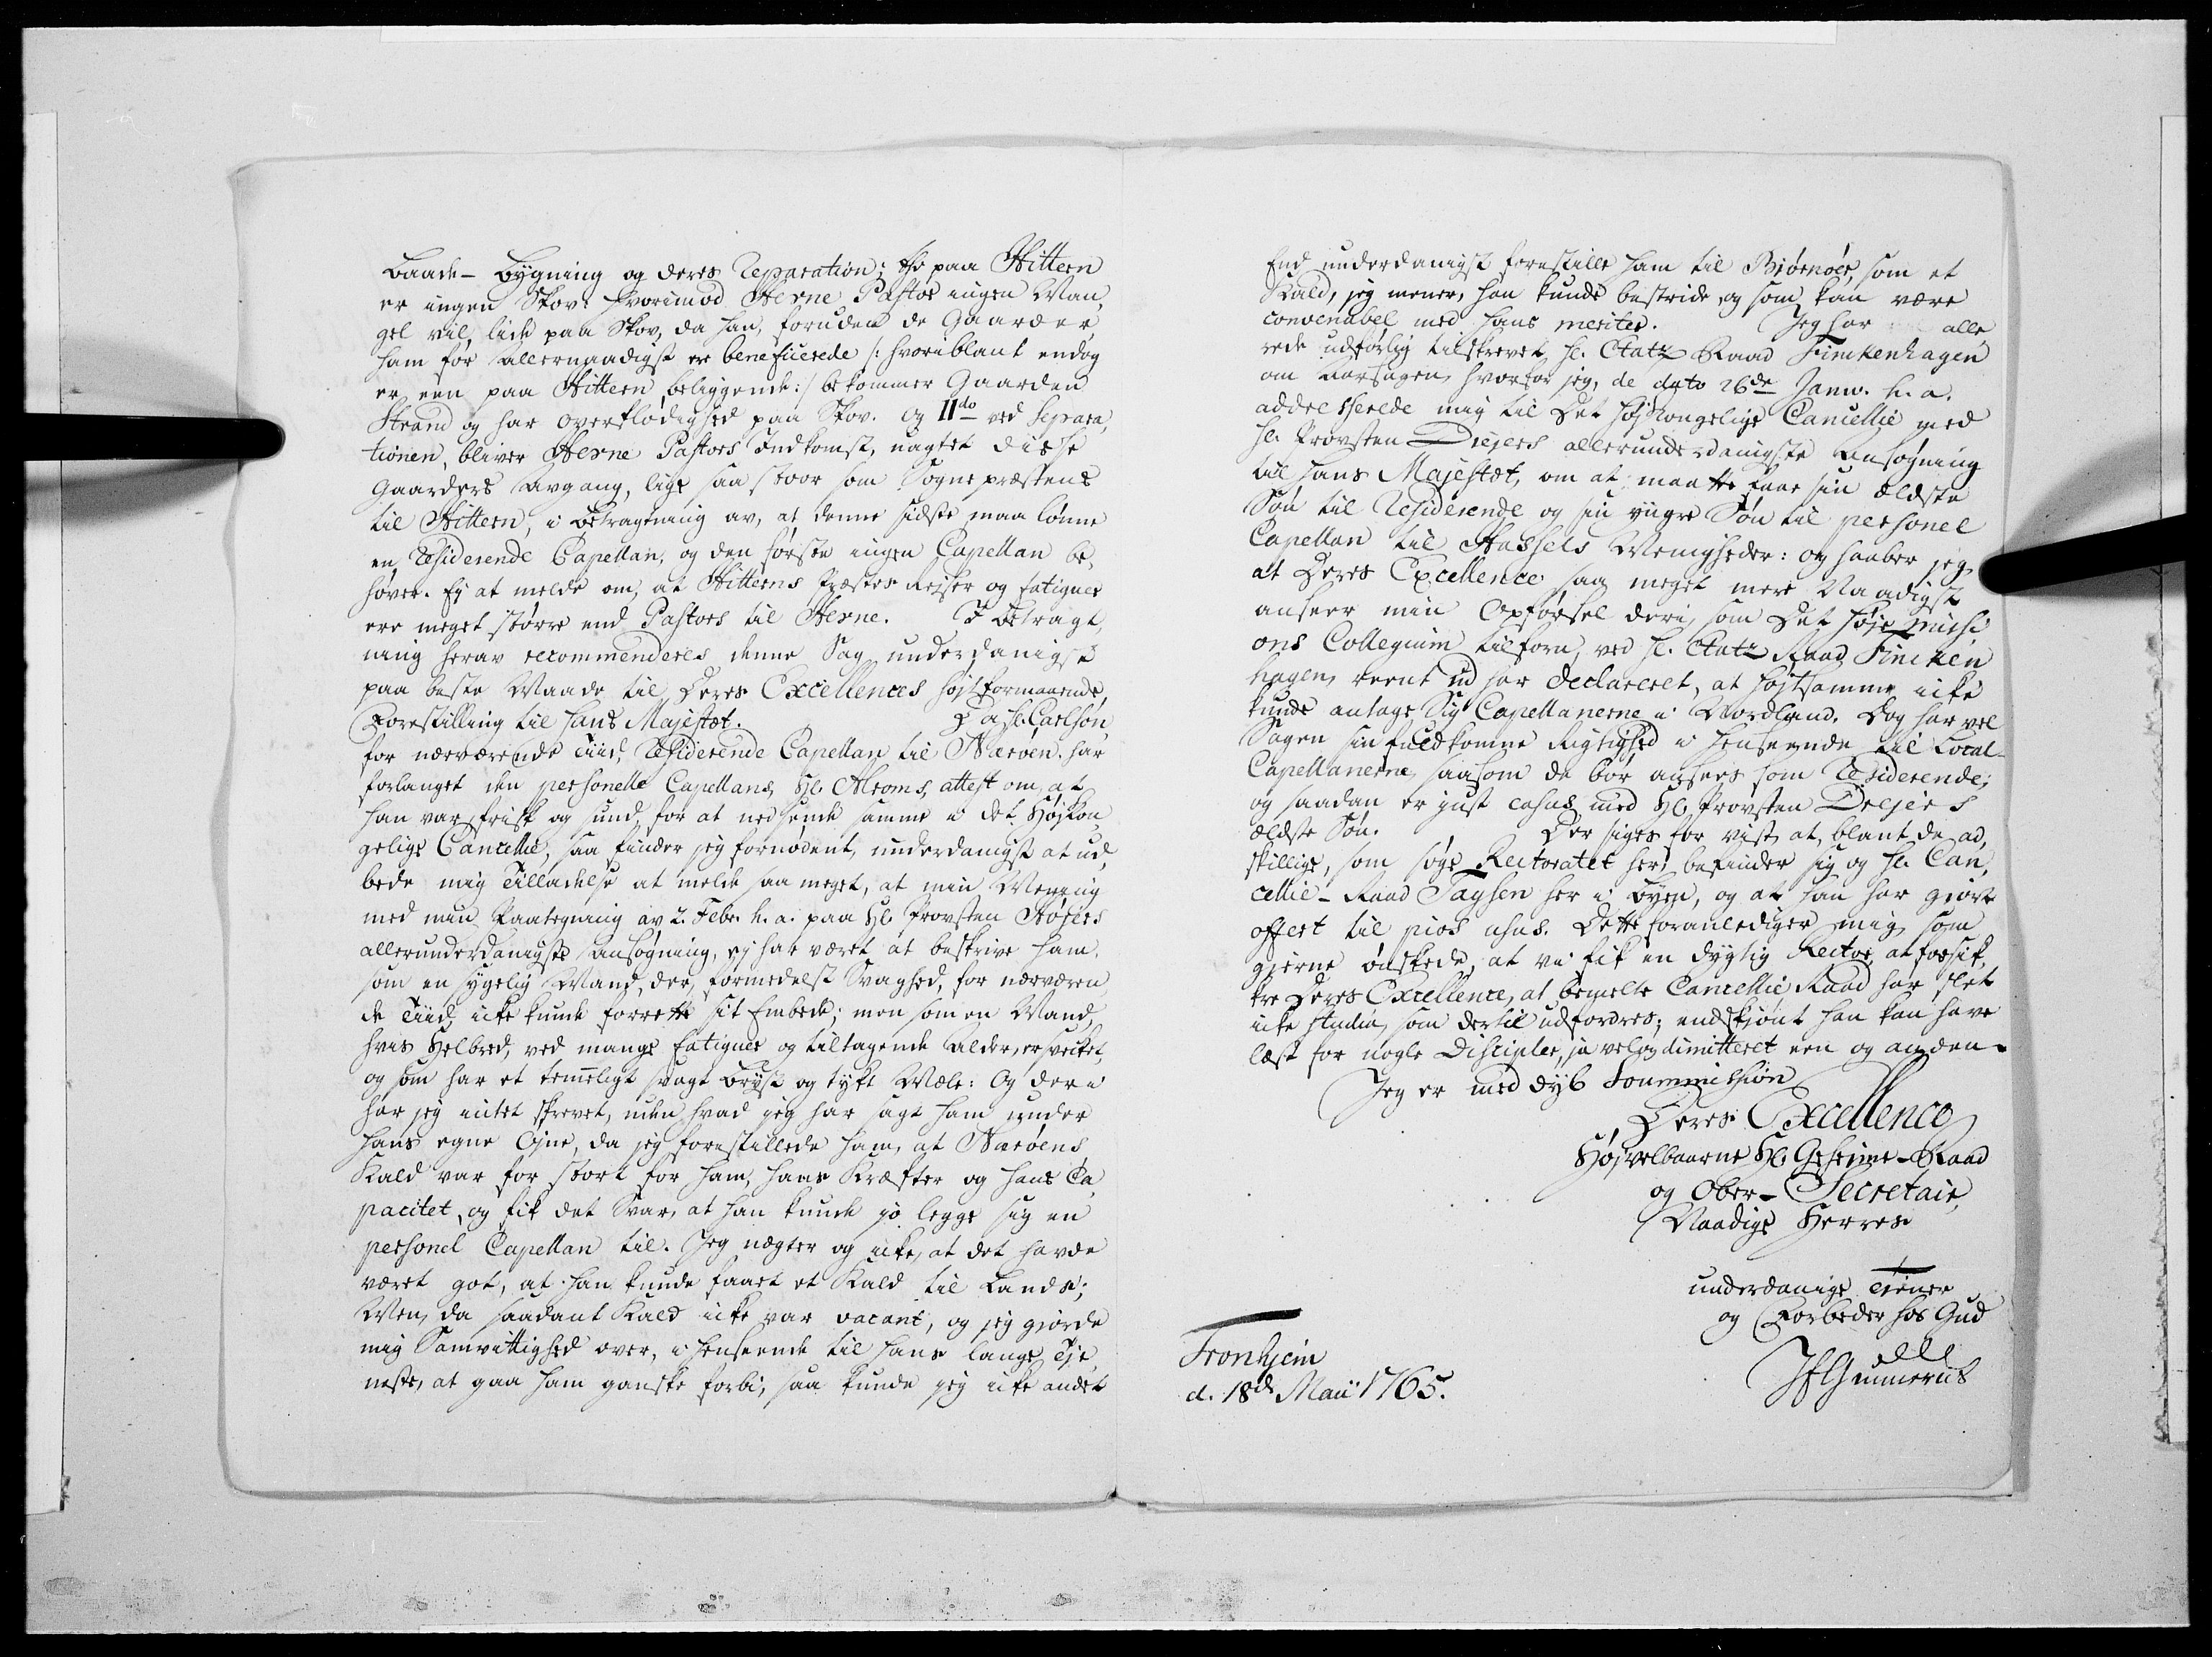 Baade-Bygning og deres Reparation; thi paa Hittern
er ingen Skov: hvorimod Herne Pastor ingen Man,
gel vil lide paa Skov, da han, foruden de Gaarder
ham før Allernaadigst ere beneficerede /: hvoriblant endog
er een paa Hittern beliggende :/ bekommer Gaarden
Strand og har Overflødighed paa Skov. og IIdo ved Separa,
tionen, bliver Herne Pastors Indkomst, uagtet disse
Gaarders Avgang, lige saa stoor som Sognepræstens
til Hittern, i Betragtning av, at denne sidste maa lønne
en Residerende Capellan, og den første ingen Capellan be,
høver. Ej at melde om, at Hitterns Præsters Rejser og fatiguer
ere meget større end Pastors til Herne. I Betragt,
ning herav recommenderes denne Sag underdanigst
paa beste Maade til Deres Excellences højtformaaende
Forestilling til Hans Majestæt. Da Hr. Carlsøn
for nærværende Tiid Residerende Capellan til Nærøen har
forlanget den personelle Capellans, Hr. Alroms, attest om, at
han var frisk og sund, for at nedsende samme i det Højkon,
gelige Cancellie, saa finder jeg fornødent, underdanigst at ud
bede mig Tilladelse at melde saa meget, at min Mening
med min Paategning av 2. Febr. h. a. paa Hr. Provsten Høyers
allerunderdanigste Ansøgning, ej har været at beskrive ham
som en sygelig Mand, der, formedelst Svaghed, for nærværen
de Tiid, icke kunde forrette sit Embede; men som en Mand,
hvis Helbred, ved mange fatiguer og tiltagende Alder, er svecket,
og som har et temmeligt svagt Bryst og tykt Mæle: Og deri
har jeg intet skrevet, uden hvad jeg har sagt ham under
hans egne Øjne, da jeg forestillede ham, at Nærøens
Kald var for stort for ham, hans Kræfter og hans Ca,
pacitet, og fik det Svar, at han kunde jo legge sig en
personel Capellan til. Jeg nægter og icke, at det havde
været got, at han kunde faaet et Kald til Lands;
Men, da saadant Kald icke var vacant, og jeg giorde
mig Samvittighed over, i henseende til hans lange Tje,
neste, at gaa ham ganske forbi, saa kunde jeg icke andet
End underdanigst forestille ham til Bjørnøer, som et
Kald, jeg mener, han kunde bestride, og som kan være
convenabel med hans meriter. Jeg har alle
rede udførlig tilskrevet Hr. Etatz Raad Finckenhagen
om Aarsagen, hvorfor jeg, de dato 26de Janu. h. a.
addresserede mig til Det højkongelige Cancellie med
Hr. Provsten Drejers allerunderdanigste Ansøgning
til Hans Majestæt, om at maatte faae sin ældste
Søn til Residerende og sin yngre Søn til personel
Capellan til Hassels Menigheder: og haaber jeg,
at Deres Excellence saa meget mere Naadigst
anseer min Opførsel deri, som Det høje Missi
ons Collegium tilforn, ved Hr. Etatz Raad Fincken
hagen, reent ud har declareret, at højtsamme icke
kunde antage Sig Capellanerne i Nordland. Dog har vel
Sagen sin fuldkomne Rigtighed i henseende til Local-
Capellanerne, saasom de bør ansees som Residerende;
og saadan er just casus med Hr. Provsten Drejers
ældste Søn. Der siges for vist, at blant de ad,
skillige, som søge Rectoratet her, befinder sig og Hr. Can,
cellie-Raad Taysen her i Byen, og at han har giort
offert til pios usus. Dette foranlediger mig, som
gjerne ønskede, at vi fik en dygtig Rector, at forsik,
kre Deres Excellence, at bemelte Cancellie Raad har slet
icke studia, som dertil udfordres; endskjønt han kan have
læst for nogle Discipler, ja vel og dimitteret een og anden.
Jeg er med dyb Soummission
Deres Excellence
Højvelbaarne Hr. Geheime-Raad
og Ober-Secretair,
Naadige Herres
underdanige Tiener
og Forbeder hos Gud
JEGunnerus
Tronhjem
d. 18de Maii 1765.